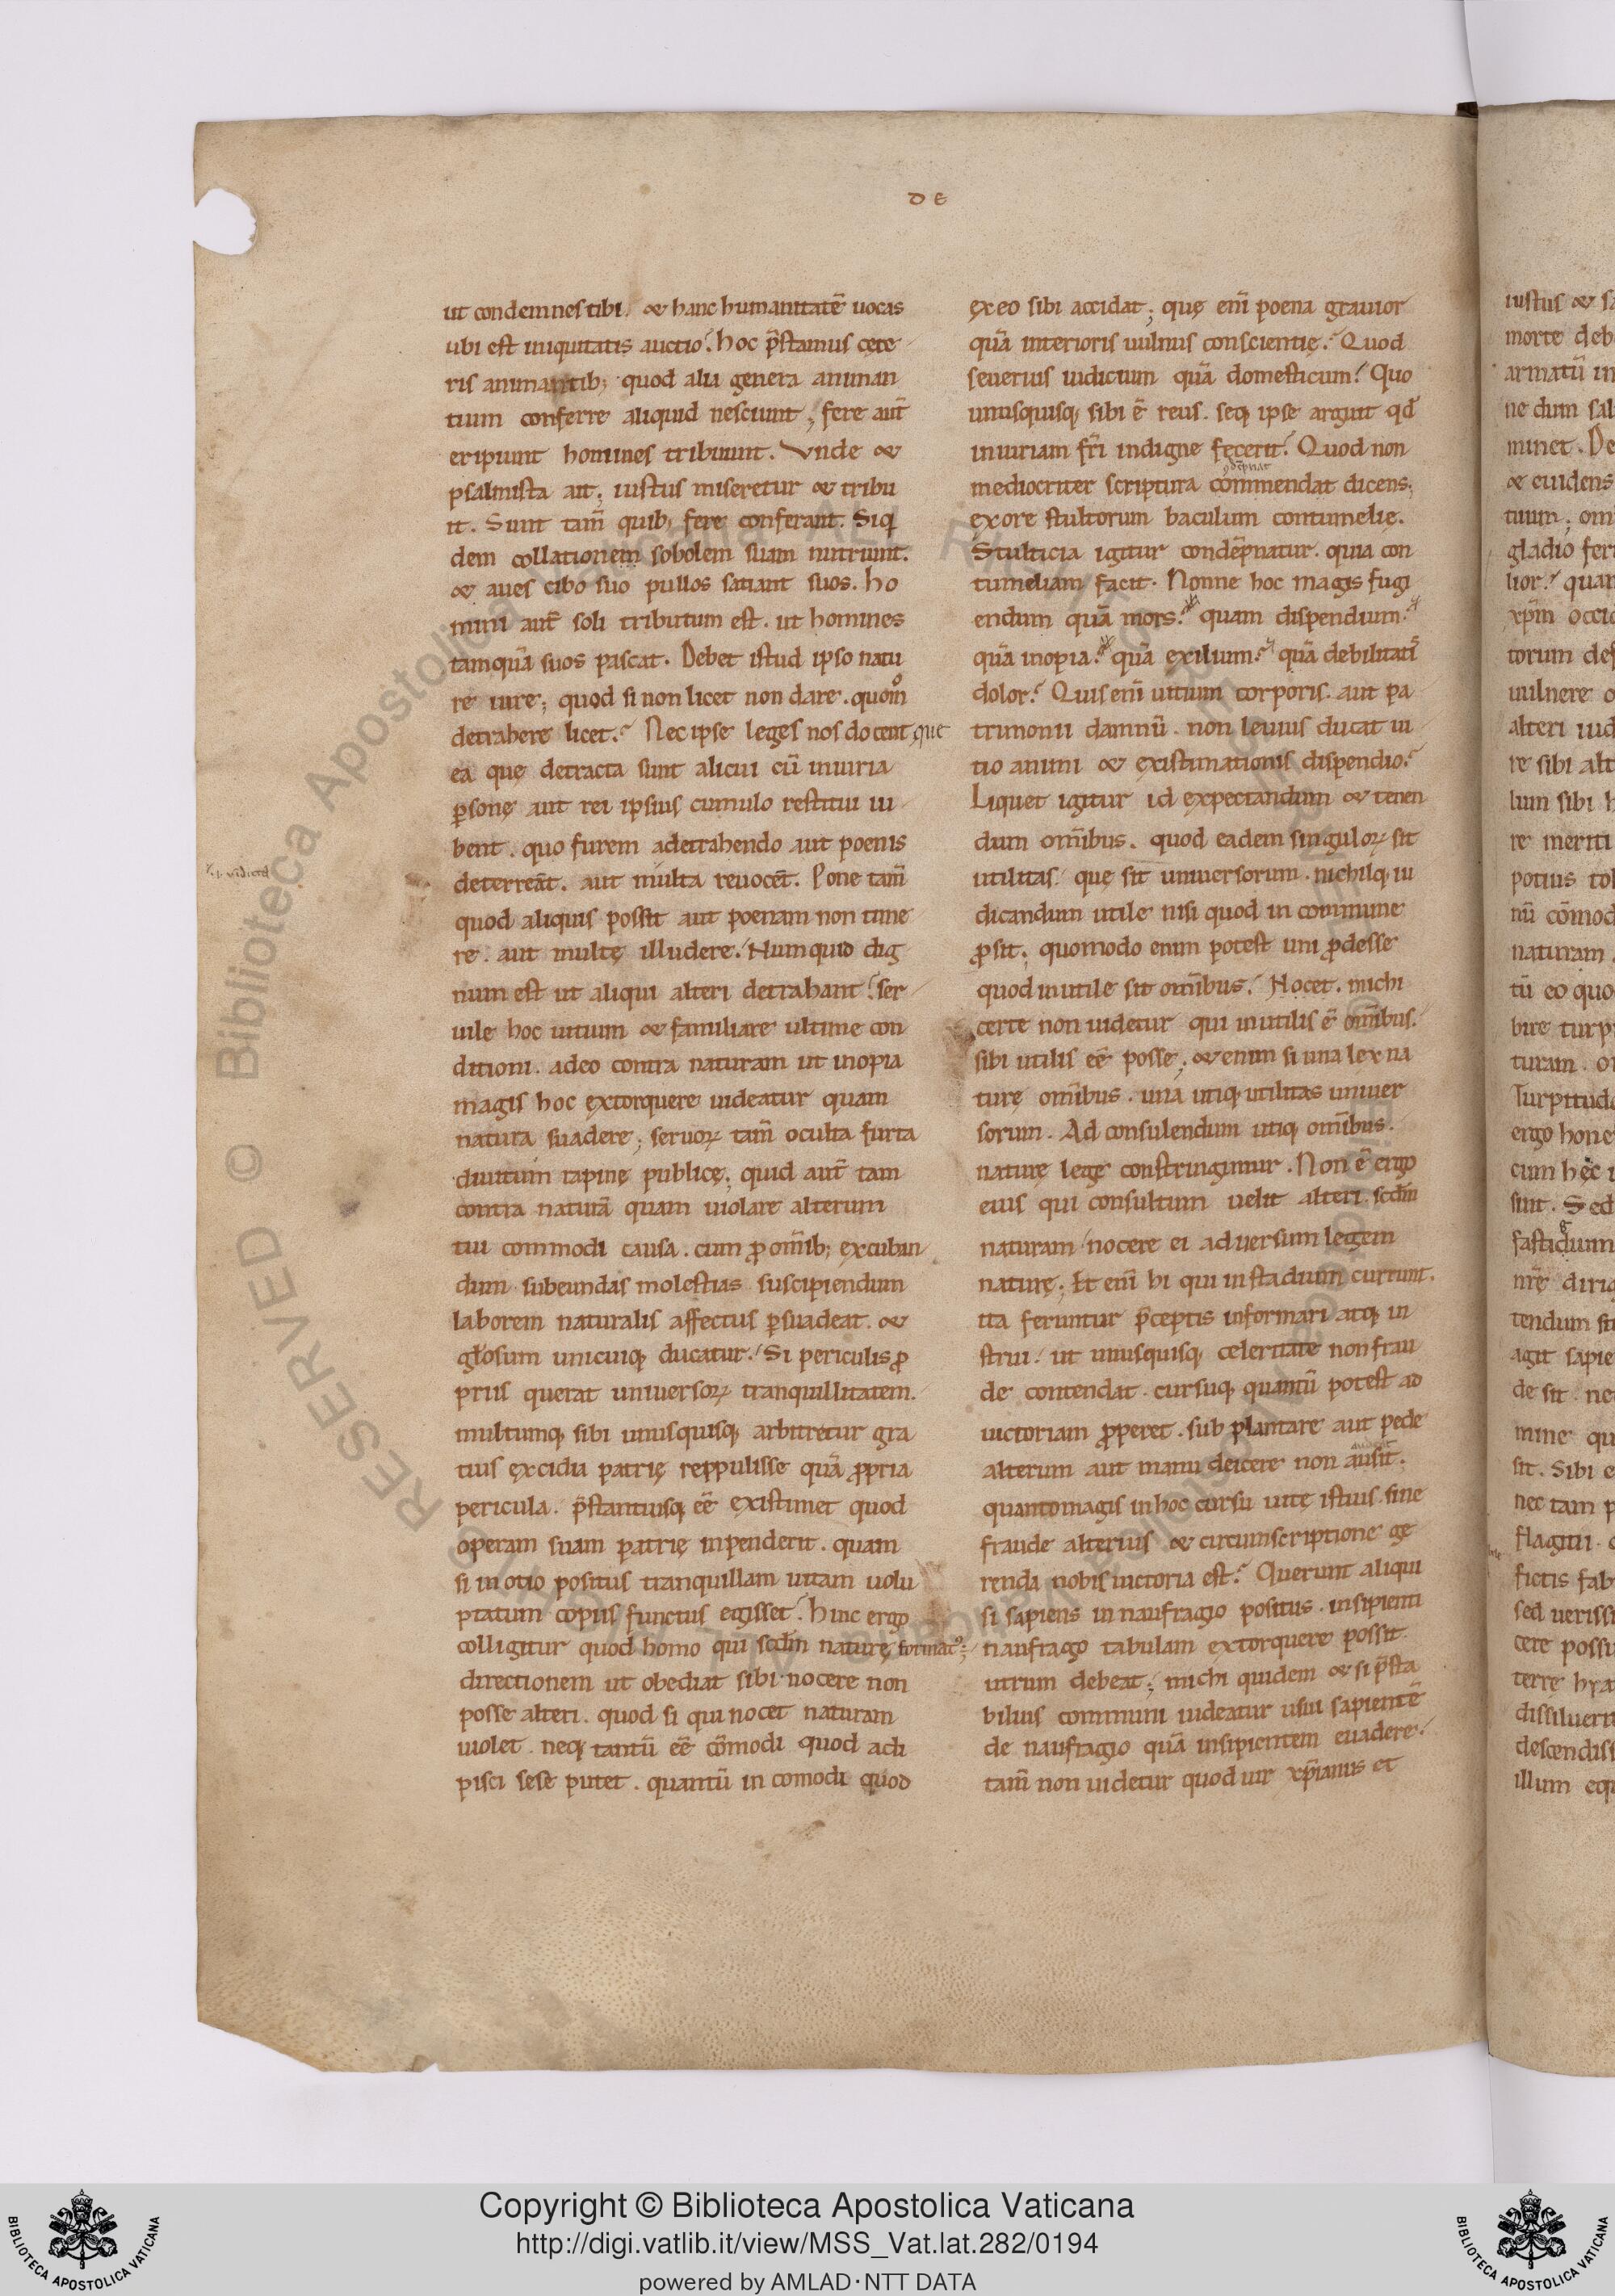 DE
ut condemnes tibi, & hanc humanitatē uocas
ubi est iniquitatis auctio? hoc p̄stamus cęte
ris animantib; quod alia genera animan
tium conferre aliquid nesciunt; fere aut̄
eripiunt homines tribuunt. Vnde &
psalmista ait; iustus miseretur & tribu
it. Sunt tam̄ quib; fere conferant. Siq
dem collationem sobolem suam nutriunt.
& aues cibo suo pullos satiant suos. ho
mini aut̄ soli tributum est. ut homines
tamquā suos pascat. Debet istud ipso natu
re iure; quod si non licet non dare. quom̊
detrahere licet? Nec ipse leges nos docent que
ea quę detracta sunt alicui cū iniuria
ꝑsonę aut rei ipsius cumulo restitui iu
bent. quo furem a detrahendo aut poenis
.i. vidicta
deterreāt. aut multa reuocēt. Pone tam̄
quod aliquis possit aut poenam non time
re. aut multę illudere. Numquid dig
num est ut aliqui alteri detrahant? ser
uile hoc uitium & familiare ultime con
ditioni. adeo contra naturam ut inopia
magis hoc extorquere uideatur quam
natura suadere; seruoꝝ tam̄ oculta furta
diuitum rapinę publicę; quid aut̄ tam
contra naturā quam uiolare alterum
tui commodi causa. cum ꝓ om̄ib; excuban
dum subeundas molestias suscipiendum
laborem naturalis affectus ꝑsuadeat. &
gl̄osum unicuiq; ducatur. Si periculis ꝓ
priis querat uniuersoꝝ tranquillitatem.
multumq; sibi unusquisq; arbitretur gra
tius ęxcidia patrię reppulisse quā ꝓpria
pericula. p̄stantiusq; eē existimet quod
operam suam patrię inpenderit. quam
si in otio positus tranquillam uitam uolu
ptatum copiis functus egisset? hinc ergo
colligitur quod homo qui scd̄m naturę format';
directionem ut obediat sibi nocere non
posse alteri. quod si qui nocet naturam
uiolet. neq; tantū eē cōmodi quod adi
pisci sese putet. quantū in comodi quod
ex eo sibi accidat; quę eni̅ poena grauior
quā interioris uulnus conscientię? Quod
seuerius iudicium quā domesticum? Quo
unusquisq; sibi ē reus. seq; ipse arguit qd̄
iniuriam fr̄i indigne fecerit? Quod non
mediocriter scriptura commendat dicens;
ex ore stultorum baculum contumelie.
Stulticia igitur condēpnatur. quia con
tumeliam facit. Nonne hoc magis fugi
endum quā mors? quam dispendium?
quā inopia? quā exilium? quā debilitati̅s
dolor? Quis eni̅ uitium corporis aut pa
trimonii damnū. non leuius ducat ui
tio animi & existimationis dispendio?
Liquet igitur id expectandum & tenen
dum om̄ibus. quod eadem singuloꝝ sit
utilitas que sit uniuersorum. nichilq; iu
dicandum utile nisi quod in commune
ꝓsit; quomodo enim potest uni ꝓdesse
quod inutile sit om̄ibus? Nocet. michi
certe non uidetur qui inutilis ē om̄ibus.
sibi utilis eē posse; & enim si una lex na
turę om̄ibus. una utiq; utilitas uniuer
sorum. Ad consulendum utiq; om̄ibus.
naturę lege constringimur. Non ē ergo
eius qui consultum uelit alteri scd̄m
naturam nocere ei aduersum legem
naturę; Et eni̅ hi qui in stadium currunt.
ita feruntur p̄ceptis informari atq; in
strui. ut unusquisq; celeritate non frau
de contendat. cursuq; quantū potest ad
uictoriam ꝓperet. sub plantare aut pede
alterum aut manu deicere non ausit;
quantomagis in hoc cursu uitę istius. sine
fraude alterius & circumscriptione ge
renda nobis uictoria est? Querunt aliqui
si sapiens in naufragio positus. insipienti
naufrago tabulam extorquere possit
utrum debeat; michi quidem & si p̄sta
bilius communi uideatur usui sapientē
de naufragio quā insipientem euadere.
tam̄ non uidetur quod uir xp̄ianus et
Copyright © Biblioteca Apostolica Vaticana
http://digi.vatlib.it/view/MSS_Vat.lat.282/0194
powered by AMLAD·NTT DATA